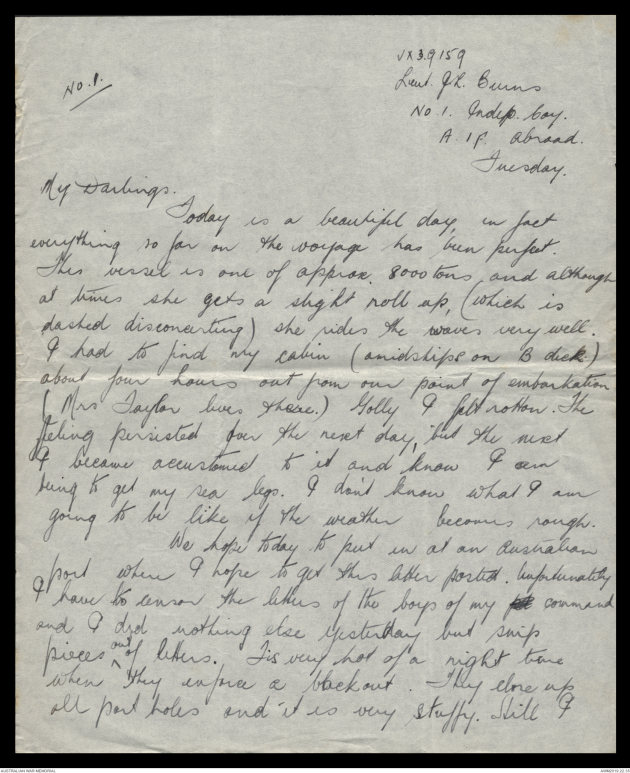 No. 1.
VX39159
Lieut. J.L. Burns
No 1. Indep. Coy.
A. I F. Abroad.
Tuesday.
My Darlings.
Today is a beautiful day, in fact
everything so far on the voyage has been perfect.
This vessel is one of approx. 8000 tons and although
at times she gets a slight roll up, (which is
dashed disconcerting) she rides the waves very well.
I had to find my cabin (amidships on B deck)
about four hours out from our point of embarkation
(Mrs Taylor lives there.) Golly I felt rotton. The
feeling persisted for the next day, but the next
I became accustomed to it and know I am
being to get my sea legs. I don't know what I am
going to be like if the weather becomes rough.
We hope today to put in at an Australian
port where I hope to get this letter posted. Unfortunately
I have to censor the letters of the boys of my command
and I did nothing else yesterday but snip
pieces out of letters. Tis very hot of a night time
when they enforce a blackout. They close up
all port holes and it is very stuffy. Still I
AUSTRALIAN WAR MEMORIAL